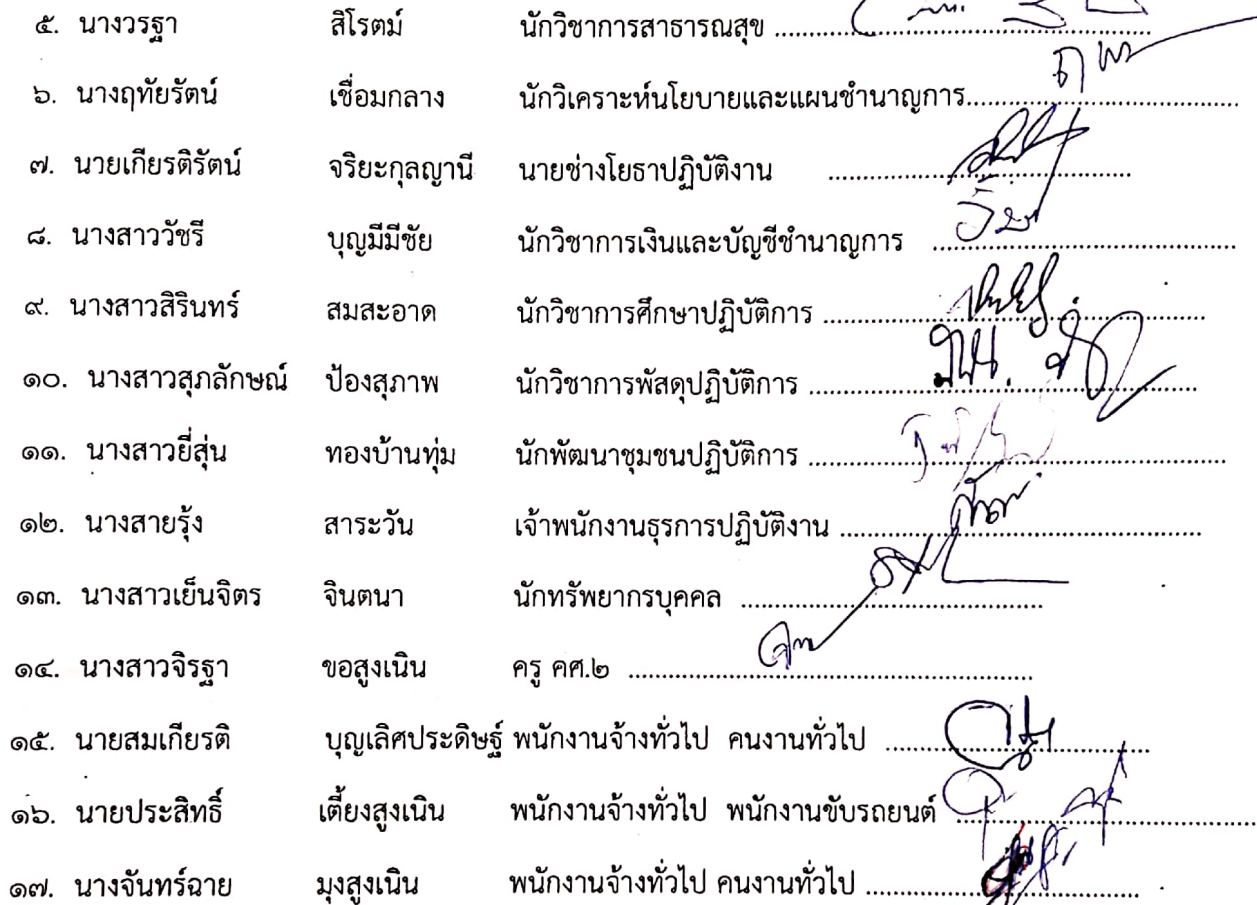 ๕. นางวรฐา สิโรตม์ นักวิชาการสาธารณสุข
๖. นางฤทัยรัตน์ เชื่อมกลาง นักวิเคราะห์นโยบายและแผนชำนาญการ
๗. นายเกียรติรัตน์ จริยะกุลญานี นายช่างโยธาปฏิบัติงาน
๘. นางสาววัชรี บุญมีมีชัย นักวิชาการเงินและบัญชีชำนาญการ
๙. นางสาวสิรินทร์ สมสะอาด นักวิชาการศึกษาปฏิบัติการ
๑๐. นางสาวสุภลักษณ์ ป้องสุภาพ นักวิชาการพัสดุปฏิบัติการ
๑๑. นางสาวยี่สุ่น ทองบ้านทุ่ม นักพัฒนาชุมชนปฏิบัติการ
๑๒. นางสายรุ้ง สาระวัน เจ้าพนักงานธุรการปฏิบัติงาน
๑๓. นางสาวเย็นจิตร จินตนา นักทรัพยากรบุคคล
๑๔. นางสาวจิรฐา ขอสูงเนิน ครู คศ.๒
๑๕. นายสมเกียรติ บุญเลิศประดิษฐ์ พนักงานจ้างทั่วไป คนงานทั่วไป
๑๖. นายประสิทธิ์ เตี้ยงสูงเนิน พนักงานจ้างทั่วไป พนักงานขับรถยนต์
๑๗. นางจันทร์ฉาย มุงสูงเนิน พนักงานจ้างทั่วไป คนงานทั่วไป